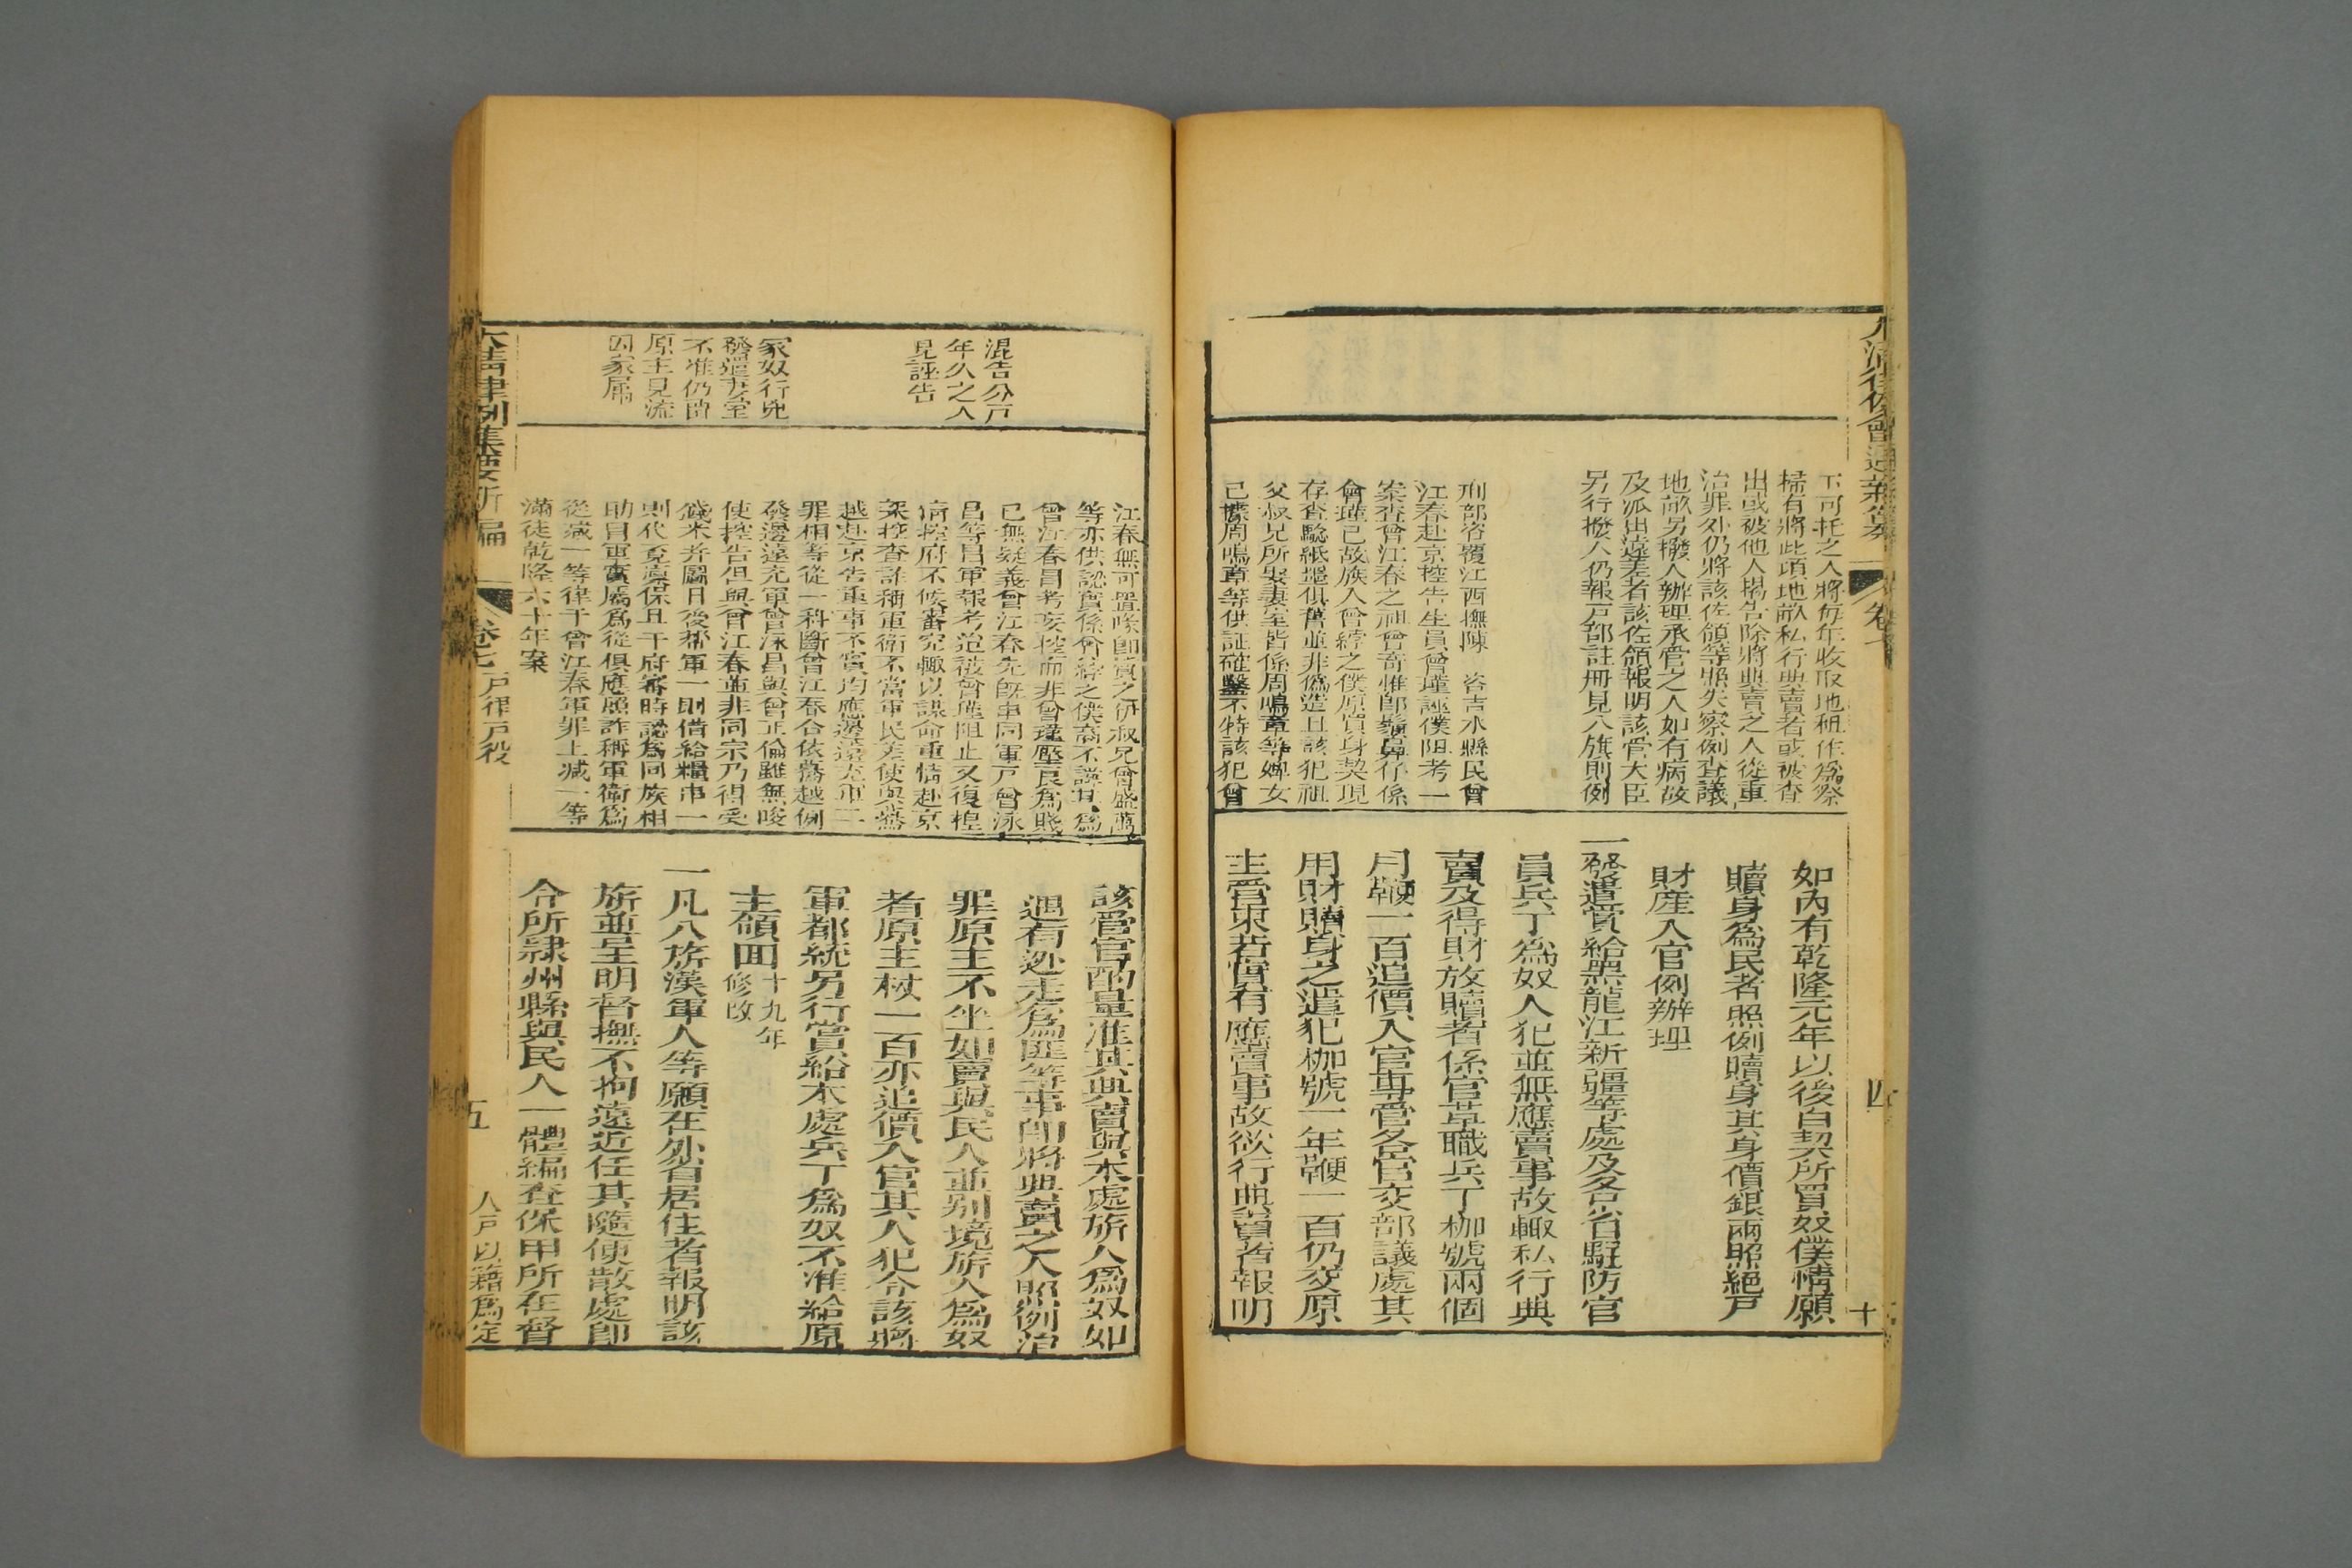 下可托之人將每年收取地租作爲祭
掃有將此項地畝私行典賣者或被查
出或被他人揭告除將典賣之人從重
治罪外仍將該佐領等照失察例查議
地畝另撥人辦理承管之人如有病故
及派出遠差者該佐領報明該管大臣
另行撥人仍報戶部註冊見八旗則例
刑部咨覆江西撫陳 咨吉水縣民曾
江春赴京控告生員曾瓘誣僕阻考一
案查曾江春之祖曾奇惟卽鬍鼻仔係
曾瓘已故族人曾綍之僕原買身契現
存查驗紙墨俱舊並非僞造且該犯祖
父叔兄所娶妻室皆係周鳴章等婢女
已據周鳴章等供証確鑿不特該犯曾
如內有乾隆元年以後白契所買奴僕情願
贖身爲民者照例贖身其身價銀兩照絕戶
財產入官例辦理
一發遣賞給黑龍江新疆等處及各省駐防官
員兵丁爲奴人犯並無應賣事故輒私行典
賣及得財放贖者係官革職兵丁枷號兩個
月鞭一百追價入官專管各官交部議處其
用財贖身之遣犯枷號一年鞭一百仍交原
主管束若實有應賣事故欲行典賣者報明
四
十
混告分戶
年久之人
見誣告
家奴行兇
發遣妻室
不准仍留
原主見流
囚家屬
江春無可置喙卽質之伊叔兄曾盛萬
等亦供認實係曾綍之僕裔不諱其爲
曾江春冒考妄控而非曾瓘壓良爲賤
已無疑義曾江春先旣串同軍戶曾泳
昌等冒軍報考追被曾瓘阻止又復捏
情控府不候審究輒以謀命重情赴京
妄控查詐稱軍衛不當軍民差使與驀
越赴京告重事不實均應發邊遠充軍二
罪相等從一科斷曾江春合依驀越例
發邊遠充軍曾泳昌與曾正倫雖無唆
使控告但與曾江春並非同宗乃得受
錢米弁圖日後幫軍一則借給糧串一
則代覓廩保且于府審時認爲同族相
助冒軍實屬爲從俱應照詐稱軍衛爲
從減一等律于曾江春軍罪上減一等
滿徒乾隆六十年案
該管官酌量准其典賣與本處旂人爲奴如
遇有逃走爲匪等事卽將典賣之人照例治
罪原主不坐如賣與民人並別境旂人爲奴
者原主杖一百亦追價入官其人犯令該將
軍都統另行賞給本處兵丁爲奴不准給原
主領回十九年修改
一凡八旂漢軍人等願在外省居住者報明該
旂並呈明督撫不拘遠近任其隨便散處卽
令所隸州縣與民人一體編查保甲所在督
大清律例集要新編
卷七
戶律戶役
五
人戶以籍爲定